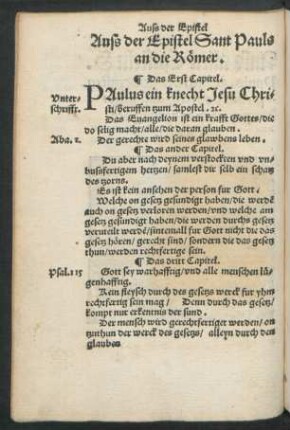 Auß der Epistel
Auß der Epistel Sant Pauls
an die Römer.
¶ Das Erst Capitel.
Vnter- PAulus ein knecht Jesu Chri-
schrifft. sti/beruffen zum Apostel. ꝛc.
Das Euangelion ist ein krafft Gottes/die
do selig macht/alle/die daran glauben.
Aba. 2. Der gerechte wird seines glawbens leben.
¶ Das ander Capitel.
Du aber nach deynem verstockten vnd vn-
busfertigem hertzen/samlest dir selb ein schatz
des zorns.
Es ist kein ansehen der person fur Gott.
Welche on gesetz gesündigt haben/die werdē
auch on gesetz verloren werden/vnd welche am
gesetz gesündigt haben/die werden durchs gesetz
verurteilt werdē/sintemall fur Gott nicht die das
gesetz hören/gerecht sind/sondern die das gesetz
thun/werden rechtfertig sein.
¶ Das dritt Capitel.
Psal. 115 Gott sey warhafftig/vnd alle menschen lü-
genhafftig.
Kein fleysch durch des gesetzs werck fur yhm
rechtfertig sein mag/ Denn durch das gesetz/
kompt nur erkentnis der sund.
Der mensch wird gerechtfertiget werden/on
zuthun der werck des gesetz/ alleyn durch den
glauben